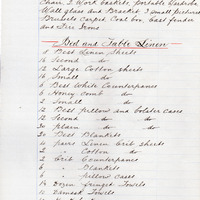 Chair, 2 Work baskets, portable Wardrobe
Wall glass and Bracket 7 small pictures
Brussels Carpet Coal box, Cast fender
and Fire Irons
Bed and Table Linen
Best Linen Sheets
12 Second do
12 Large Cotton sheets
16 Small do
6 Best White Counterpanes
6 Honey Comb do
Small do
12 Best pillow and bolster cases
12 Second do do
20 Plain do do
20 Best Blankets
4 pairs Linen Crib Sheets
2 " Cotton do
2 Crib Counterpanes
" Blankets
6 " pillow cases
Dozen fringed Towels
Damask Towels